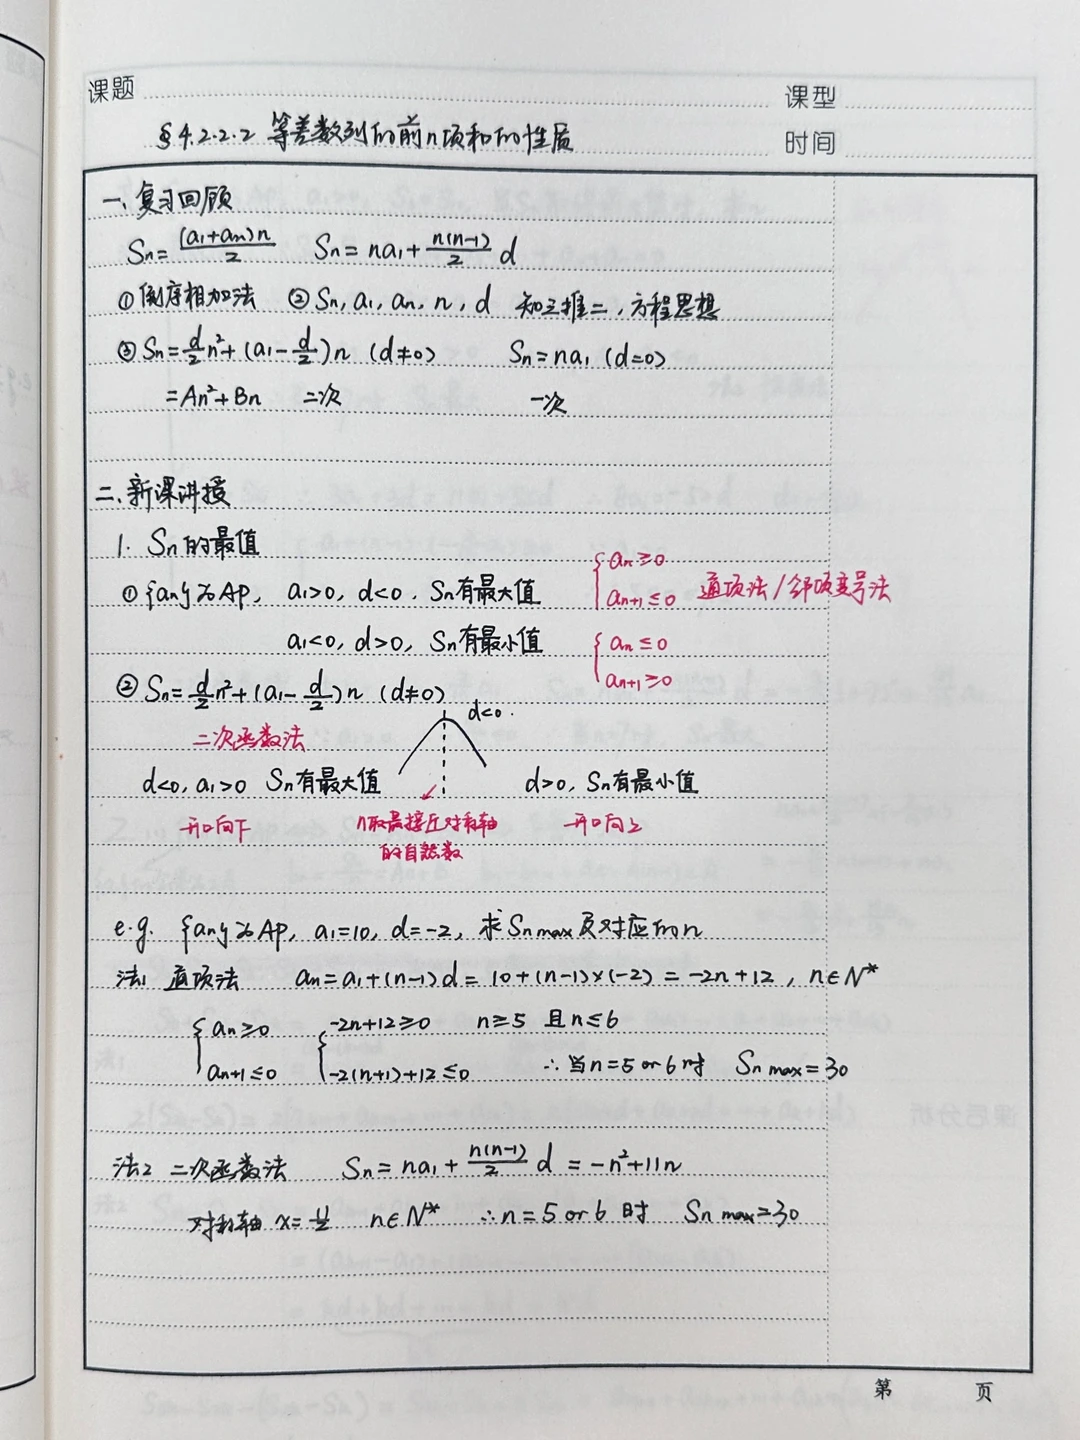 课题
课型
§4.2.2.2 等差数列的前n项和的性质
时间
一、复习回顾
Sn=(a₁+an)n/2 Sn=na₁+n(n-1)/2 d
①倒序相加法 ②Sn, a₁, an, n, d 知三推二，方程思想
③Sn=d/2 n²+(a₁-d/2)n (d≠0) Sn=na₁ (d=0)
=An²+Bn 二次 一次
二、新课讲授
1. Sn的最值
①{an}为AP, a₁>0, d<0, Sn有最大值 {an≥0 an+1≤0 通项法/邻项变号法
a₁<0, d>0, Sn有最小值 {an≤0 an+1≥0
②Sn=d/2 n²+(a₁-d/2)n (d≠0)
二次函数法 d<0.
d<0, a₁>0 Sn有最大值 d>0, Sn有最小值
开口向下 n取最接近对称轴的自然数 开口向上
e.g. {an}为AP, a₁=10, d=-2, 求Sn max及对应的n
法1 通项法 an=a₁+(n-1)d=10+(n-1)×(-2)=-2n+12, n∈N*
{an≥0 {-2n+12≥0 n≥5 且n≤6
an+1≤0 -2(n+1)+12≤0 ∴当n=5 or 6时 Sn max=30
法2 二次函数法 Sn=na₁+n(n-1)/2 d=-n²+11n
对称轴 x=11/2 n∈N* ∴n=5 or 6 时 Sn max=30
第 页